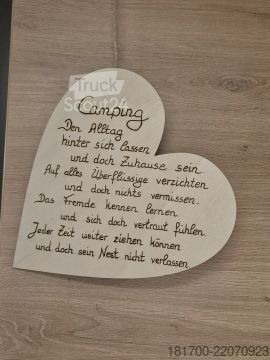 Truck
Scout24
Camping
Den Alltag
hinter sich lassen
und doch Zuhause sein
Auf alles Überflüssige verzichten
und doch nichts vermissen.
Das Fremde kennen lernen
und sich doch vertraut fühlen
Jeder Zeit weiter ziehen können
und doch sein Nest nicht verlassen
181700-22070923